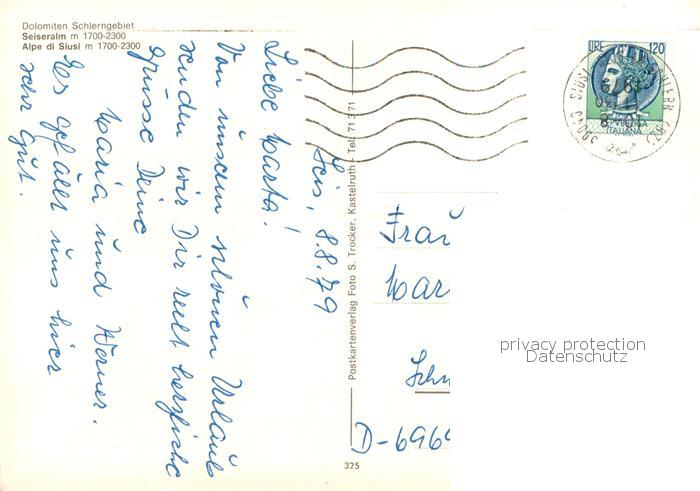 Dolomiten Schlerngebiet
Seiseralm m 1700-2300
Alpe di Siusi m 1700-2300
Seis, 8.8.79
Liebe Marta!
Von unserem schönen Urlaub
senden wir Dir recht herzliche
Grüsse Deine
Maria und Werner.
Es gefällt uns hier
sehr gut.
Postkartenverlag Foto S. Trocker, Kastelruth - Tel. 71 3 71
325
LIRE 120
REPUBBLICA
ITALIANA
39040 SIUSI
Frau
Mar
Schn
D-6969
privacy protection
Datenschutz